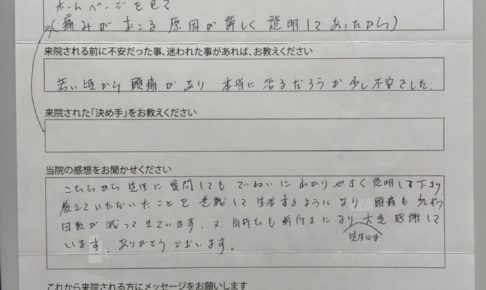 ホームページを見て
(痛みがおこる原因が詳しく説明してあったから)
来院される前に不安だった事、迷われた事があれば、お教えください
若い頃から頭痛があり 本当に治るだろうか少し不安でした。
来院された「決め手」をお教えください
当院の感想をお聞かせください
こちらから先生に質問しても ていねいに わかりやすく 説明して下さり
教えていただいたことを意識して生活するようになり、頭痛も
回数が減ってきています。又、気持ちも前向きになり 大変感謝して
先生には
います。ありがとうございます。
これから来院される方にメッセージをお願いします